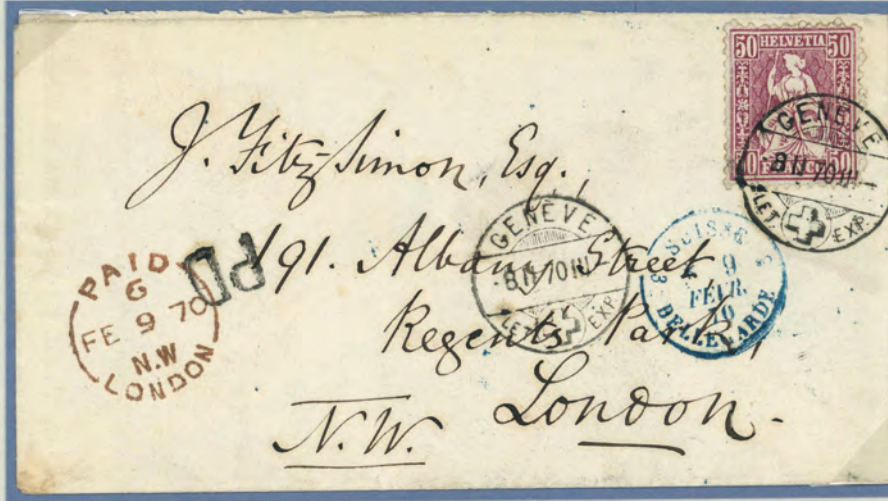 50 HELVETIA 50
50 FRANCO 50
GENÈVE
-8 II 70
LET. EXP.
J. Fitz-Simon, Esq.,
PD
191. Albany Street
Regents Park,
London.
N.W.
GENÈVE
-8 II 70
LET. EXP.
SUISSE
9
FÉVR.
70
BELLEGARDE
PAID
G
FE 9 70
N.W
LONDON